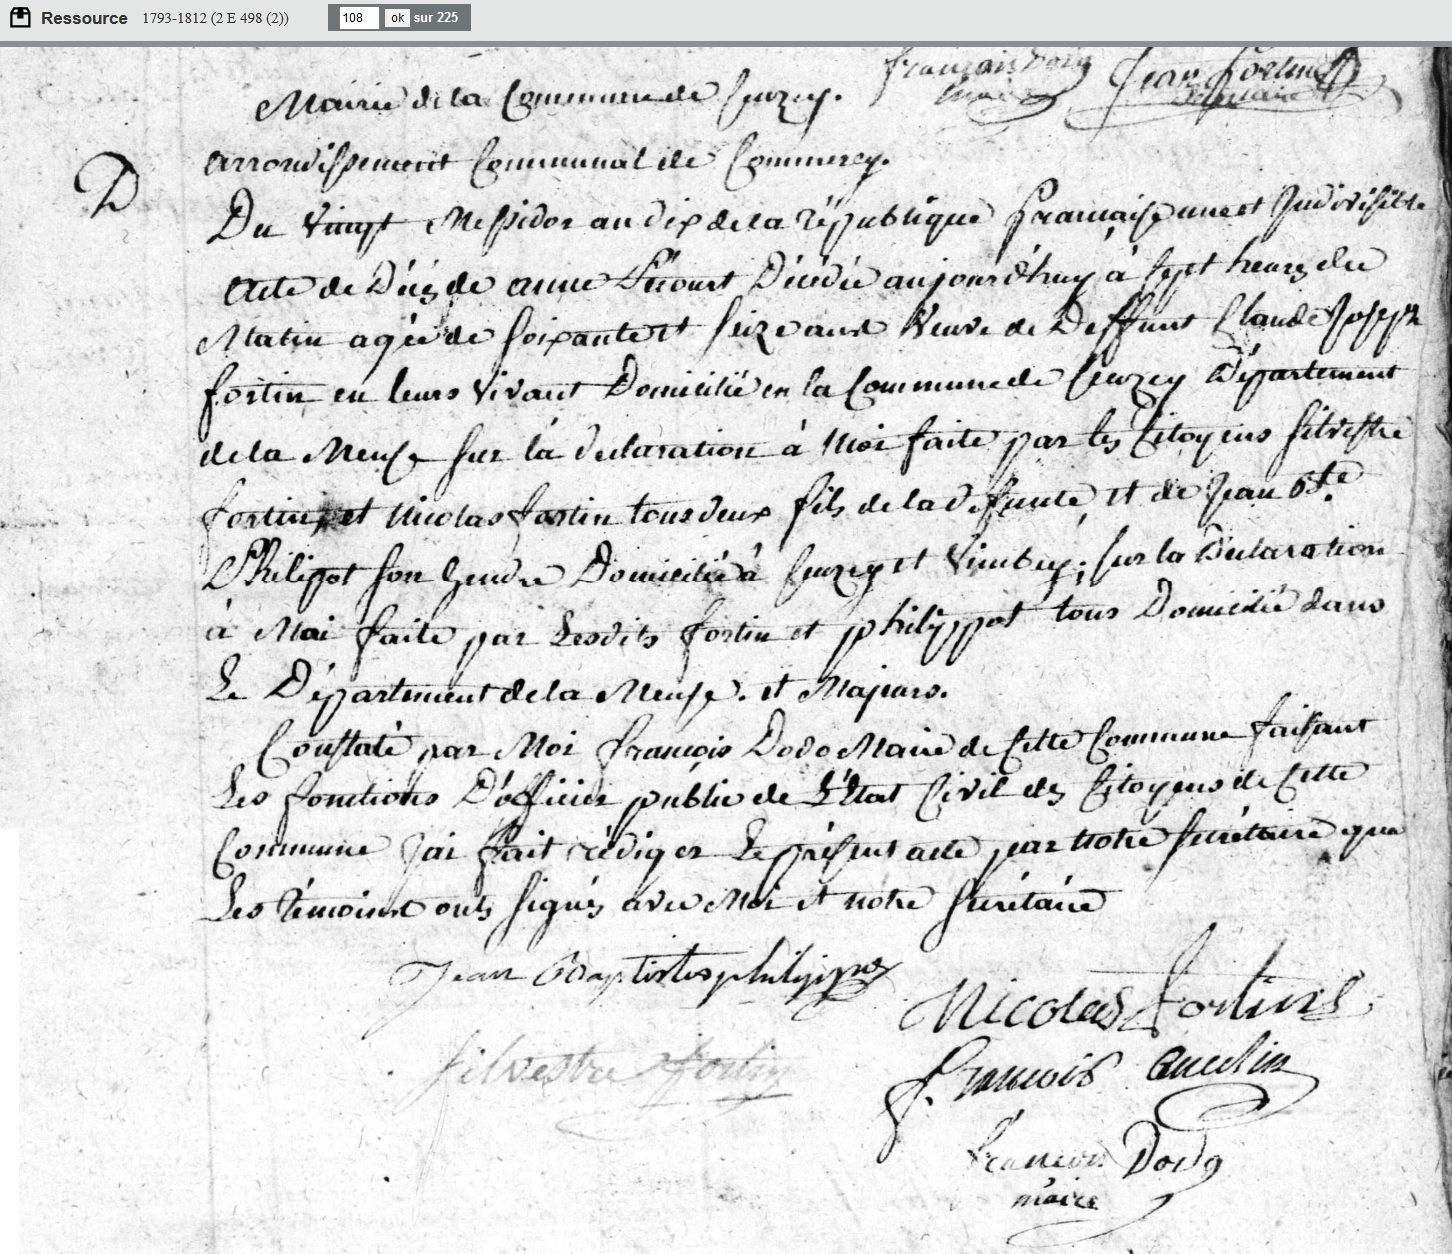 Ressource 1793-1812 (2 E 498 (2)) 108 ok sur 225
françois Dodo Jean fortin
maire Secretaire
Mairie de la Commune de Geuzey.
arrondissement Communal de Commercy.
D
Du vingt Messidor an dix de la république française une et Indivisible
Acte de Décès de anne Décédée aujourd'huy à sept heures du
Matin agée de soixante et seize ans Veuve de Deffunt Claude Joseph
fortin en leurs vivant Domicilié en la Commune de Geuzey Département
de la Meuse sur la déclaration à Moi faite par les Citoyens silvestre
fortin, et Nicolas fortin tous deux fils de la défunte, et de Jean Bte
Philipot son gendre Domicilié à Geuzey et ; sur la Déclaration
à Moi faite par Lesdits fortin et philippot tous Domicilié dans
Le Département de la Meuse. et Majeurs.
Constaté par Moi François Dodo Maire de Cette Commune faisant
Les fonctions D'officier public de L'État Civil des Citoyens de Cette
Commune Jai fait rédiger Le présent acte par notre secrétaire que
Les témoins onts signés avec Moi et notre secrétaire
Jean Baptiste philippot
Nicolas Fortin
silvestre fortin
françois
françois Dodo
maire